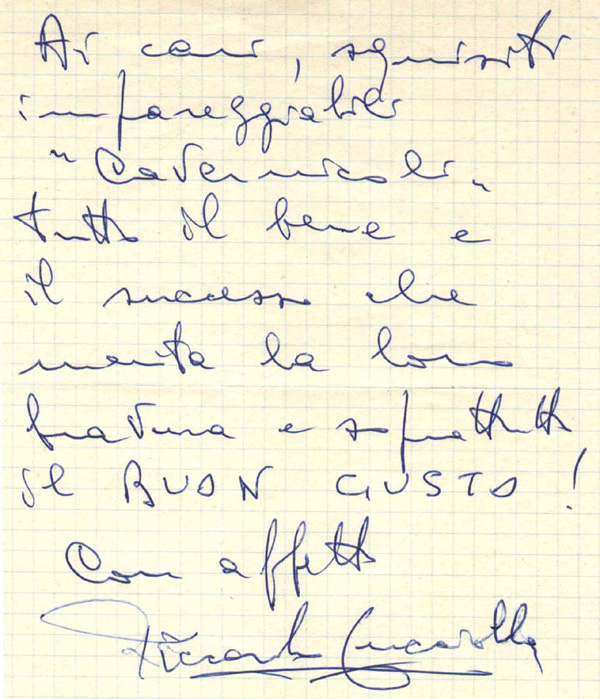 Ai cari, squisiti
impareggiabili
"Cavernicoli"
tutto il bene e
il successo che
merita la loro
bravura e soprattutto
il BUON GUSTO!
Con affetto
Riccardo Cucciolla